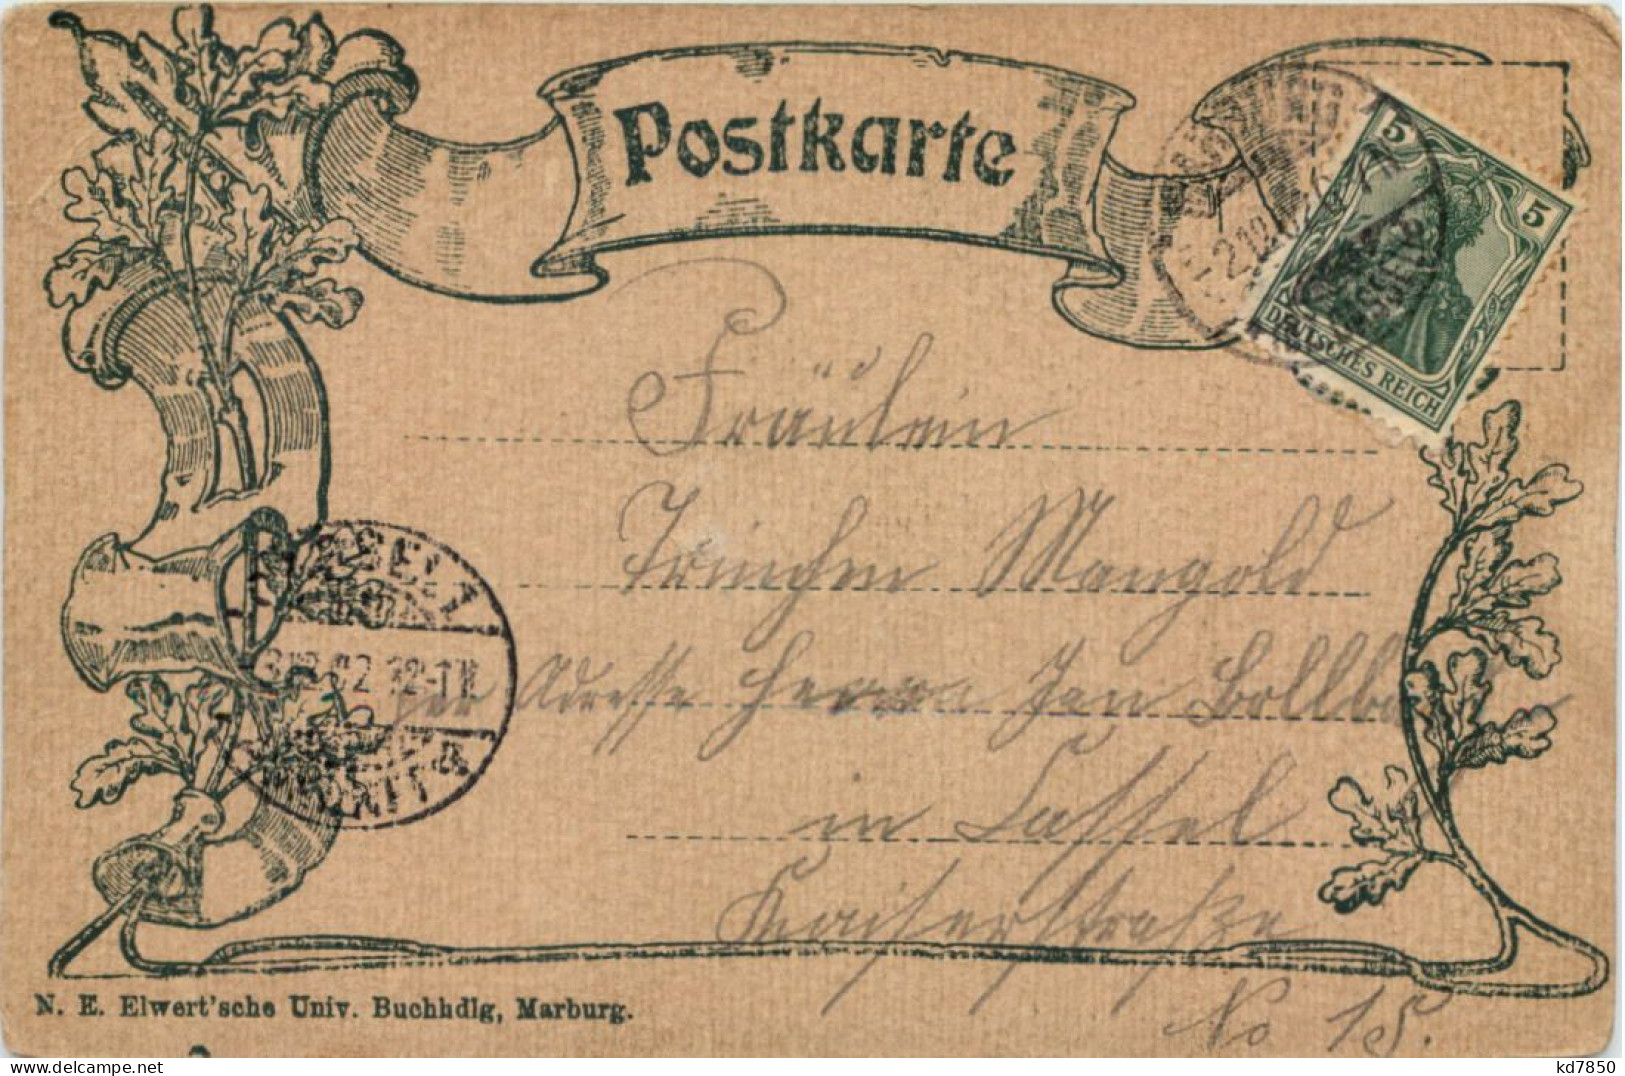 Postkarte
5 5
DEUTSCHES REICH
Fräulein
Trinchen Mangold
per Adresse Herrn Jan
in Cassel
Kaiserstraße
No 15.
CASSEL 1
3.12.02 12-1N
N. E. Elwert'sche Univ. Buchhdlg, Marburg.
kd7850